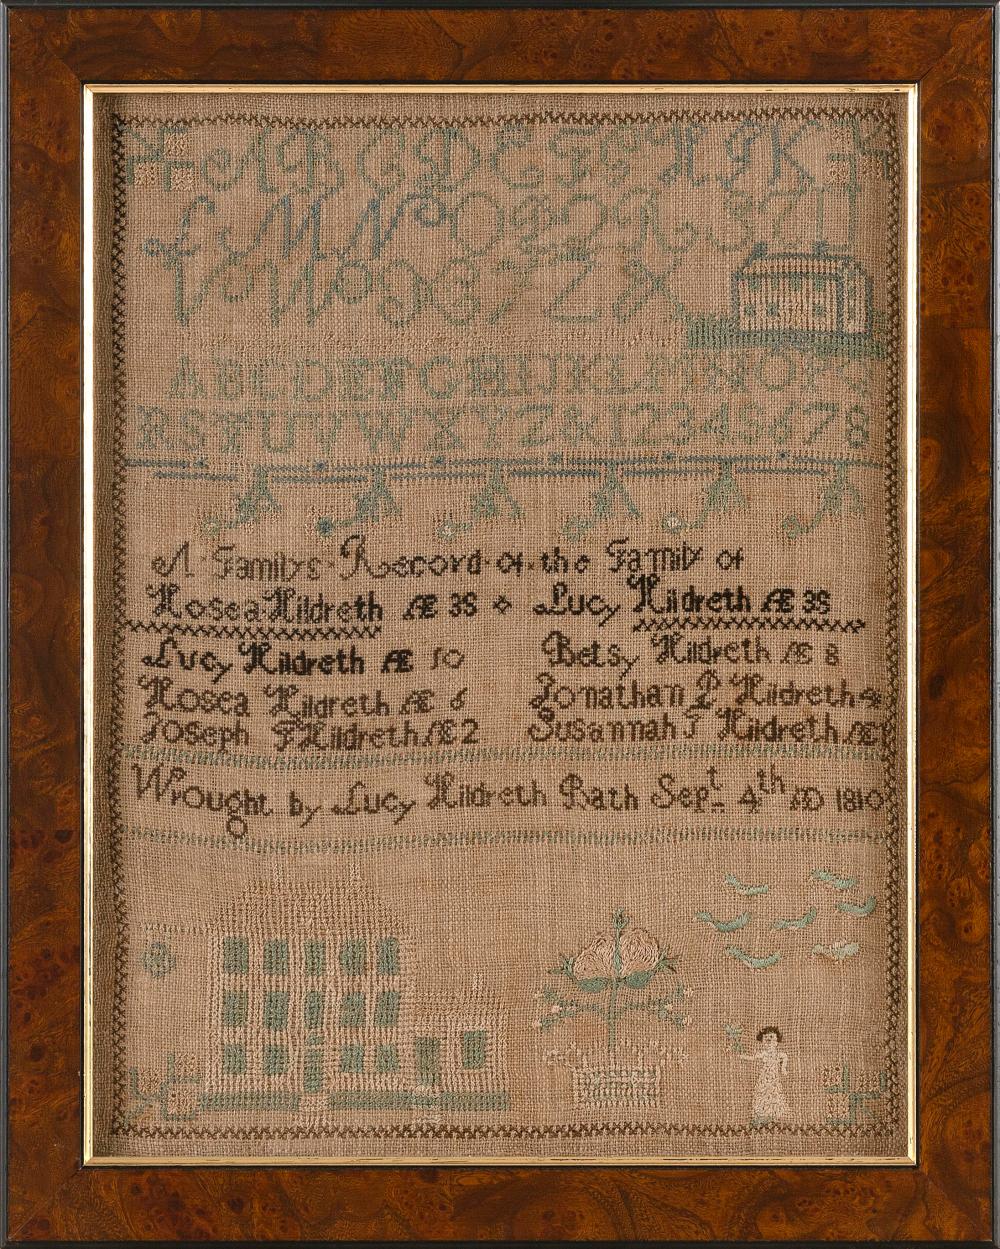 A B C D E F G H I K
L M N O P Q R S T U
V W X Y Z &
A B C D E F G H I J K L M N O P Q
R S T U V W X Y Z & 1 2 3 4 5 6 7 8
A Family's Record of the Family of
Hosea Hildreth Æ 38 Lucy Hildreth Æ 38
Lucy Hildreth Æ 10 Betsy Hildreth Æ 8
Hosea Hildreth Æ 6 Jonathan P Hildreth 4
Joseph F Hildreth Æ 2 Susannah T Hildreth Æ
Wrought by Lucy Hildreth Bath Sept 4th AD 1810